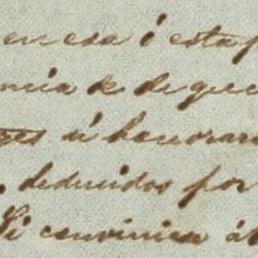 en esa i esta p
ncia de de que
res ú honorar
. deducidos por
Si conviniera á